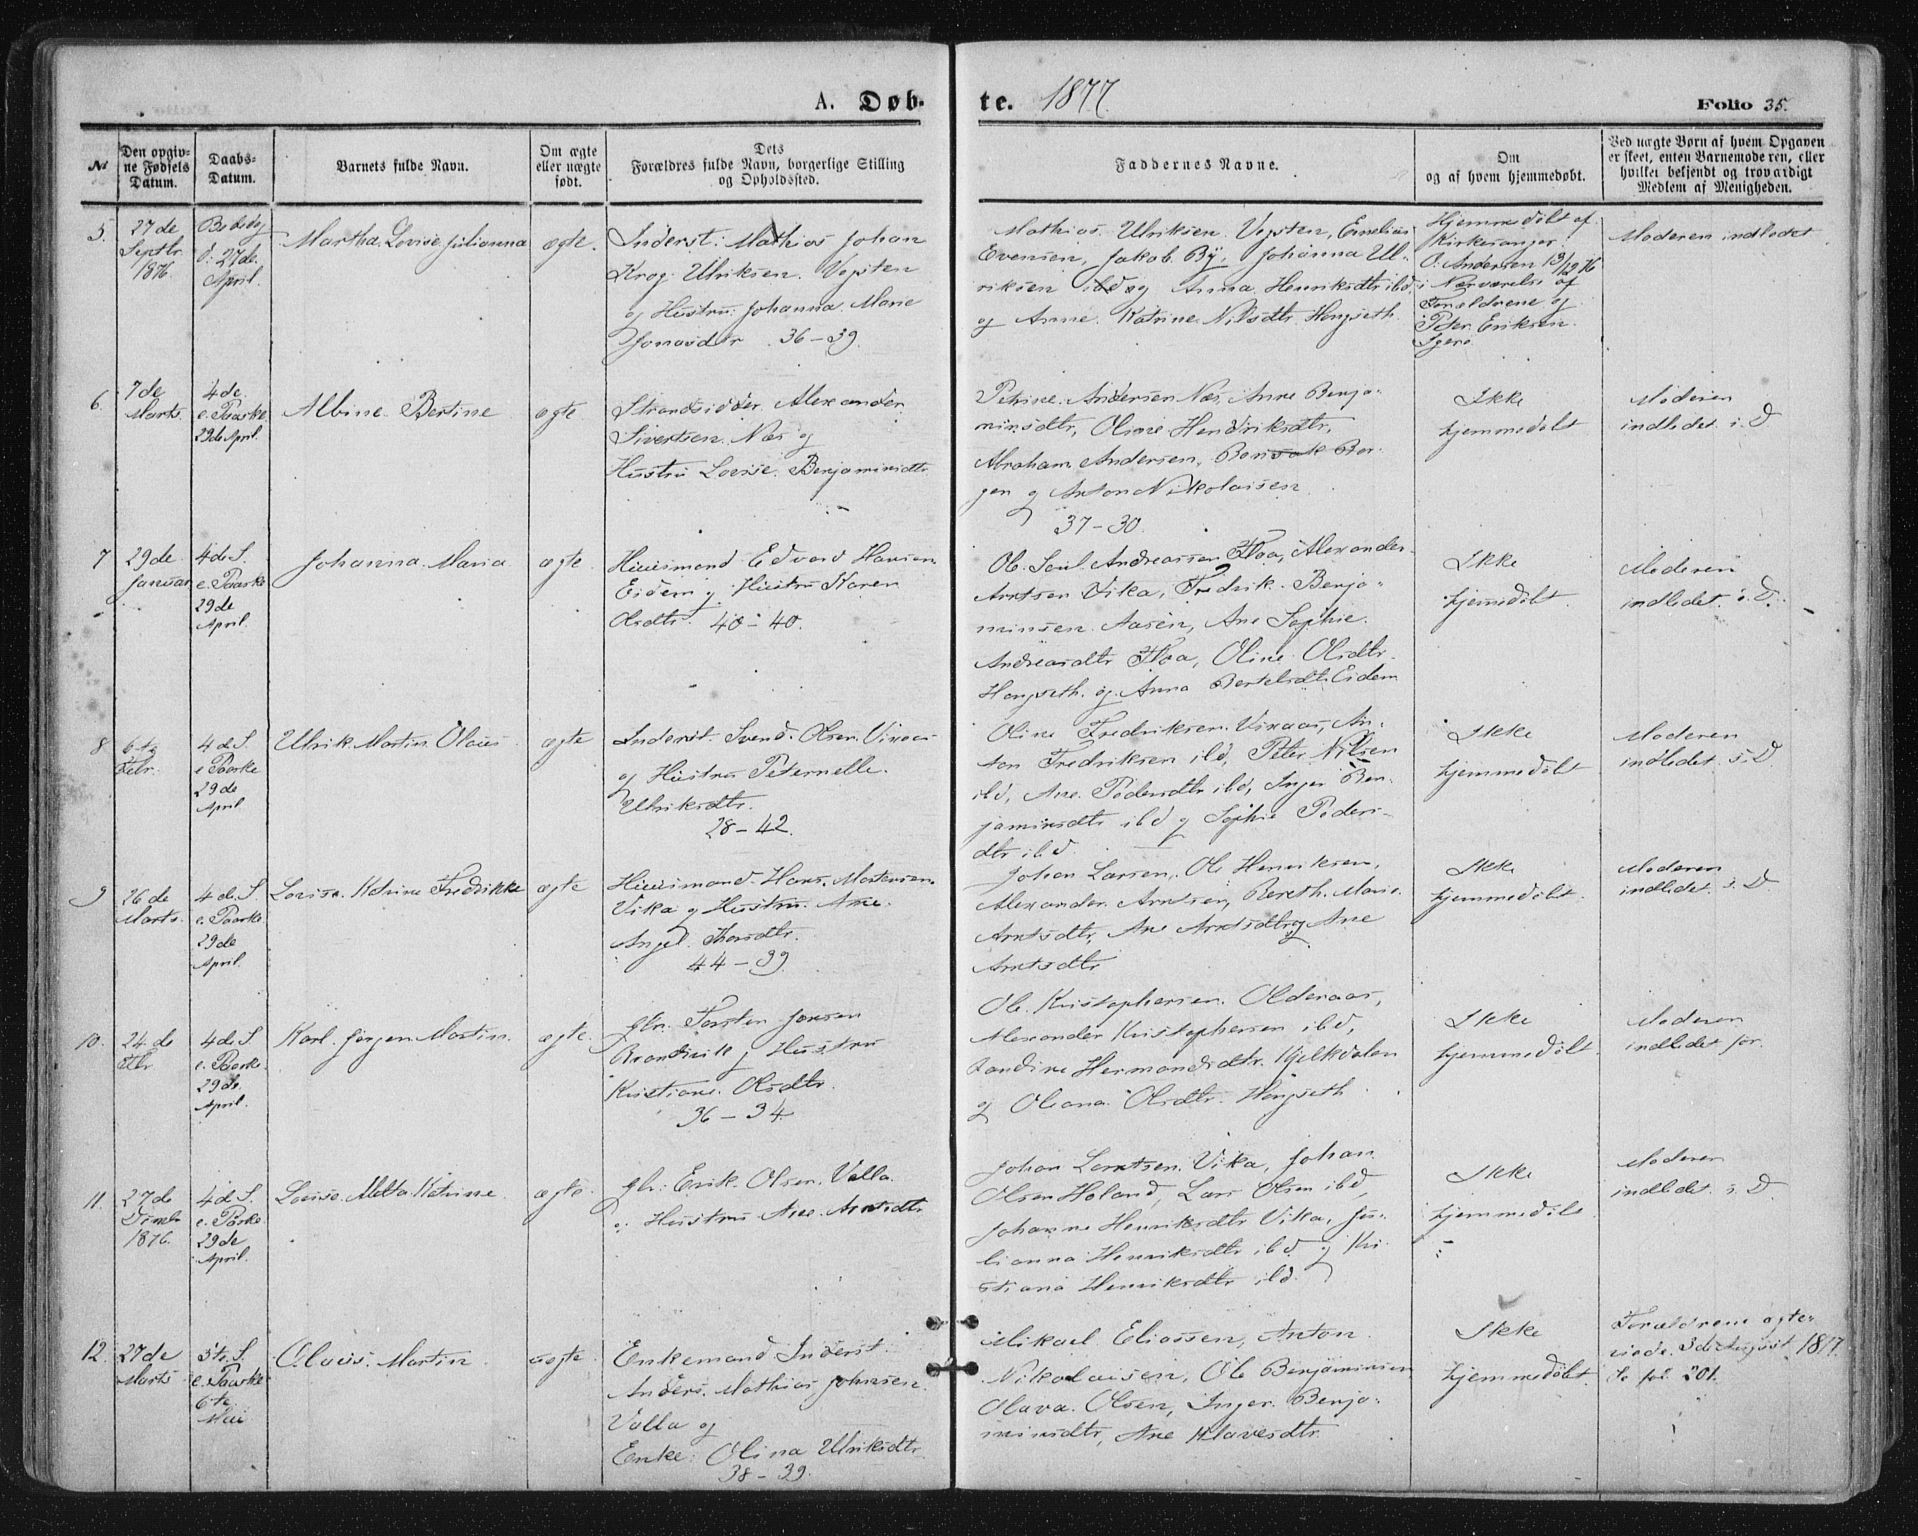 A. Døb-
te. 1877.
Folio 35.
№
Den opgiv-
ne Fødsels
Datum.
Daabs-
Datum.
Barnets fulde Navn.
Om ægte
eller uægte
født.
Dets
Forældres fulde Navn, borgerlige Stilling
og Opholdssted.
Faddernes Navne.
Om
og af hvem hjemmedøbt.
Ved uægte Børn af hvem Opgaven
er skeet, enten Barnemoderen, eller
hvilket bekjendt og troværdigt
Medlem af Menigheden.
5.
27de
Septbr.
1876.
Bededag
d: 27de
April.
Martha Lovise Julianna
ægte.
Inderst: Mathias Johan
Krog Ulriksen Vegsten
og Hustru Johanna Marie
Jonasdtr 36-39.
Mathias Ulriksen Vegsten, Cornelius
Evensen, Jakob By, Johanna Ul-
riksen ibd og Anna Henriksdtr ibd
og Anne Katrine Nilsdtr Hongseth
Hjemmedøbt af
Kirkesanger
O. Andersen 13/12 76
i Nærværelse af
Forældrene og
Peter Eriksen
Moderen indledet
6.
7de
Marts
4de
e. Paaske
29de April.
Albine Bertine
ægte
Strandsidder Alexander
Sivertsen Næs og
Hustru Lovise Benjaminsdtr
Petrine Andersen Næs, Anne Benja-
minsdtr, Oline Hendriksdtr,
Abraham Andersen, Bonsak Bor-
gen og Anton Nikolaisen
37-30.
Ikke
hjemmedøbt
Moderen
indledet i. D
7
29de
Januar
4de S.
e. Paaske
29de
April.
Johanna Maria
ægte
Huusmand Edvard Hansen
Eidem og Hustru Karen
Olsdtr. 40-40.
Ol. Saul Andreassen Floa, Alexander
Arntsen Vika, Fredrik Benja-
minsen Aasen, Ane Sophie
Andreasdtr Floa, Oline Olsdtr
Hongseth og Anna Bertelsdtr Eidem
Ikke
hjemmedøbt.
Moderen
indledet i. D.
8
6te
Febr.
4de S.
e Paaske
29de
April
Ulrik Martin Olaus
ægte
Inderst Svend Olsen Viraas
og Hustru Peternelle
Ulriksdtr.
28-42.
Oline Fredriksen Viraas, An-
ton Fredriksen ibd, Peter Nilsen
ibd, Ane Pedersdtr ibd, Inger Ben-
jaminsdtr ibd og Sophie Peders-
dtr ibd.
Ikke
hjemmedøbt
Moderen
indledet i. D
9
26de
Marts.
4de S.
e. Paaske
29de
April.
Lovise Katrine Fredrikke
ægte
Huusmand Hans Mortensen
Vika og Hustru Ane
Angel Thorsdtr.
44-39.
Johan Larsen, Ole Henriksen,
Alexander Arntsen, Bereth Marie
Arntsdtr, Ane Arntsdtr og Ane
Arntsdtr
Ikke
hjemmedøbt.
Moderen
indledet i. D
10.
24de
Febr.
4de S.
e. Paaske
29de
April.
Karl Jørgen Martin.
ægte.
Gbr. Torsten Jonsen
Brandvik og Hustru
Kristiane Olsdtr.
36-34.
Ole Kristophersen Olderaas,
Alexander Kristophersen ibd,
Landine Hermandsdtr Kjelkdalen
og Oleana Olsdtr Hongseth
Ikke
hjemmedøbt.
Moderen
indledet før.
11.
27de
Decmb.
1876.
4de S.
e. Paaske
29de
April.
Lovise Metta Katrine
ægte.
Gbr: Erik Olsen Valla
og Hustru Ane Arntsdtr
Johan Lorntsen Vika, Johan
Olsen Holand, Lars Olsen ibd,
Johanne Henriksdtr Vika, Ju-
lianna Henriksdtr ibd og Kri-
stiana Henriksdtr ibd.
Ikke
hjemmedøbt
Moderen
indledet i. D.
12.
27de
Marts
5te S.
e. Paaske
6te
Mai
Olaus Martin
uægte
Enkemand Inderst
Anders Mathias Johnsen
Valla og
Enke: Olina Ulriksdtr
38-39.
Mikael Eliassen, Anton
Nikolaisen, Ole Benjaminsen
Olava Olsen, Inger Benja-
minsdtr, Ane Klavesdtr
Ikke
hjemmedøbt.
Forældrene ægte-
viede 3de August 1877.
Se fol 201.